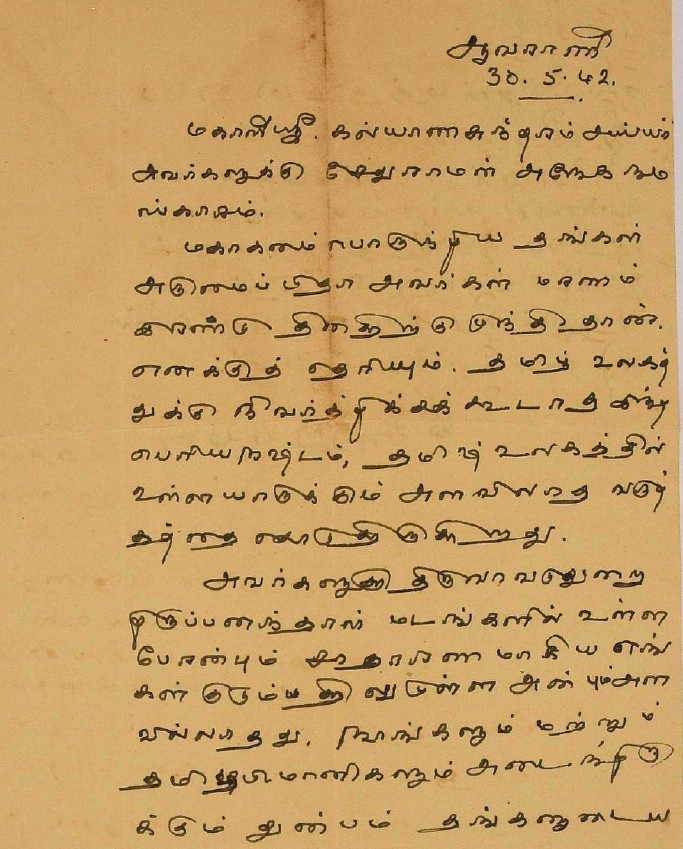 ஆவராணி
30. 5. 42.
மகாஸ்ரீ. கல்யாணசுந்தரம் அய்யர்
அவர்களுக்கு சேதுராமன் அநேக நம
ஸ்காரம்.
மகாகனம் பொருந்திய தங்கள்
அருமைப் பிதா அவர்கள் மரணம்
தான்.
எனக்குத் தெரியும். தமிழ் உலகத்
துக்கு நிவர்த்திக்கக் கூடாத இந்த
பெரிய நஷ்டம், தமிழ் உலகத்தில்
உள்ள யாருக்கும் அளவிலாத வருத்
தத்தை கொடுத்திருக்கிறது.
அவர்களுக்கு திருவாவடுதுறை
திருப்பனந்தாள் மடங்களில் உள்ள
போன்பும் சாதாரண மாகிய எங்
கள் குடும்பத்திலுமுள்ள அன்பும் அள
வில்லாதது. நாங்களும் மற்றும்
தமிழபிமானிகளும் அடைந்திரு
க்கும் துன்பம் தங்களுடைய